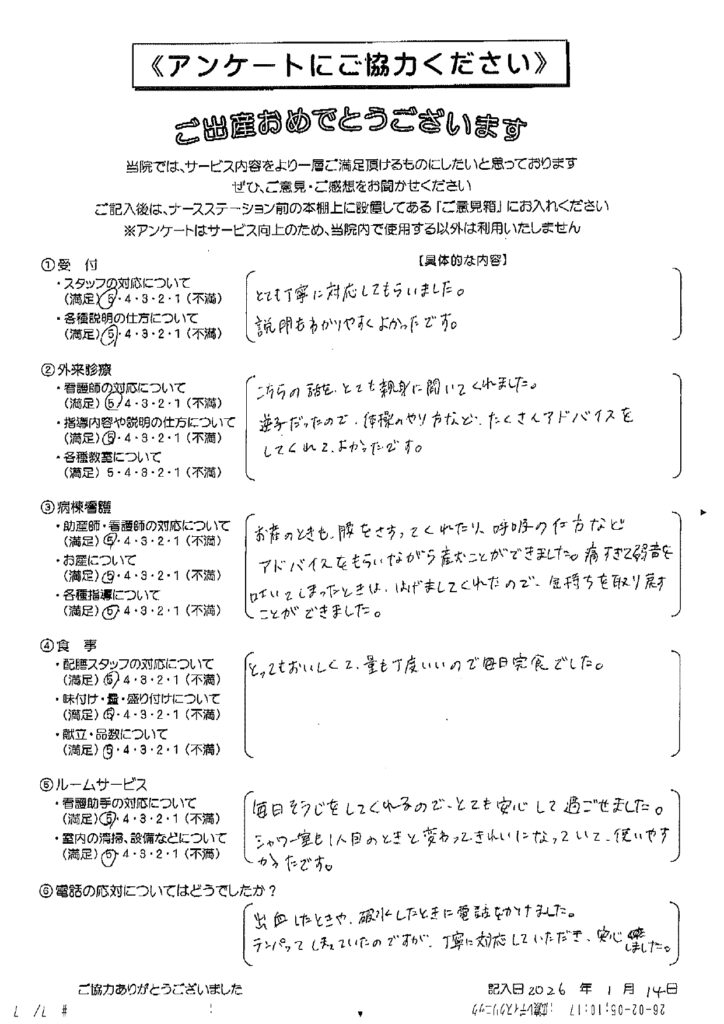 《アンケートにご協力ください》
ご出産おめでとうございます
当院では、サービス内容をより一層ご満足頂けるものにしたいと思っております
ぜひ、ご意見・ご感想をお聞かせください
ご記入後は、ナースステーション前の本棚上に設置してある「ご意見箱」にお入れください
※アンケートはサービス向上のため、当院内で使用する以外は利用いたしません
①受 付
【具体的な内容】
・スタッフの対応について
(満足) 5・4・3・2・1 (不満)
・各種説明の仕方について
(満足) 5・4・3・2・1 (不満)
とても丁寧に対応してもらいました。
説明もわかりやすくよかったです。
②外来診療
・看護師の対応について
(満足) 5・4・3・2・1 (不満)
・指導内容や説明の仕方について
(満足) 5・4・3・2・1 (不満)
・各種教室について
(満足) 5・4・3・2・1 (不満)
こちらの話を、とても親身に聞いてくれました。
逆子だったので、体操のやり方など、たくさんアドバイスを
してくれて、よかったです。
③病棟看護
・助産師・看護師の対応について
(満足) 5・4・3・2・1 (不満)
・お産について
(満足) 5・4・3・2・1 (不満)
・各種指導について
(満足) 5・4・3・2・1 (不満)
お産のときも、腰をさすってくれたり、呼吸の仕方など
アドバイスをもらいながら産むことができました。痛すぎて弱音を
はいてしまったときは、はげましてくれたので、気持ちを取り戻す
ことができました。
④食 事
・配膳スタッフの対応について
(満足) 5・4・3・2・1 (不満)
・味付け・量・盛り付けについて
(満足) 5・4・3・2・1 (不満)
・献立・品数について
(満足) 5・4・3・2・1 (不満)
とってもおいしくて、量も丁度いいので毎日完食でした。
⑤ルームサービス
・看護助手の対応について
(満足) 5・4・3・2・1 (不満)
・室内の清掃、設備などについて
(満足) 5・4・3・2・1 (不満)
毎日そうじをしてくれるので、とても安心して過ごせました。
シャワー室も1人目のときと変わってきれいになっていて、使いやす
かったです。
⑥電話の応対についてはどうでしたか?
出血したときや、破水したときに電話をかけました。
テンパってしまっていたのですが、丁寧に対応していただき、安心しました。
ご協力ありがとうございました
記入日 2026 年 1 月 14日
26-02-05;10:17
# 7/ 7